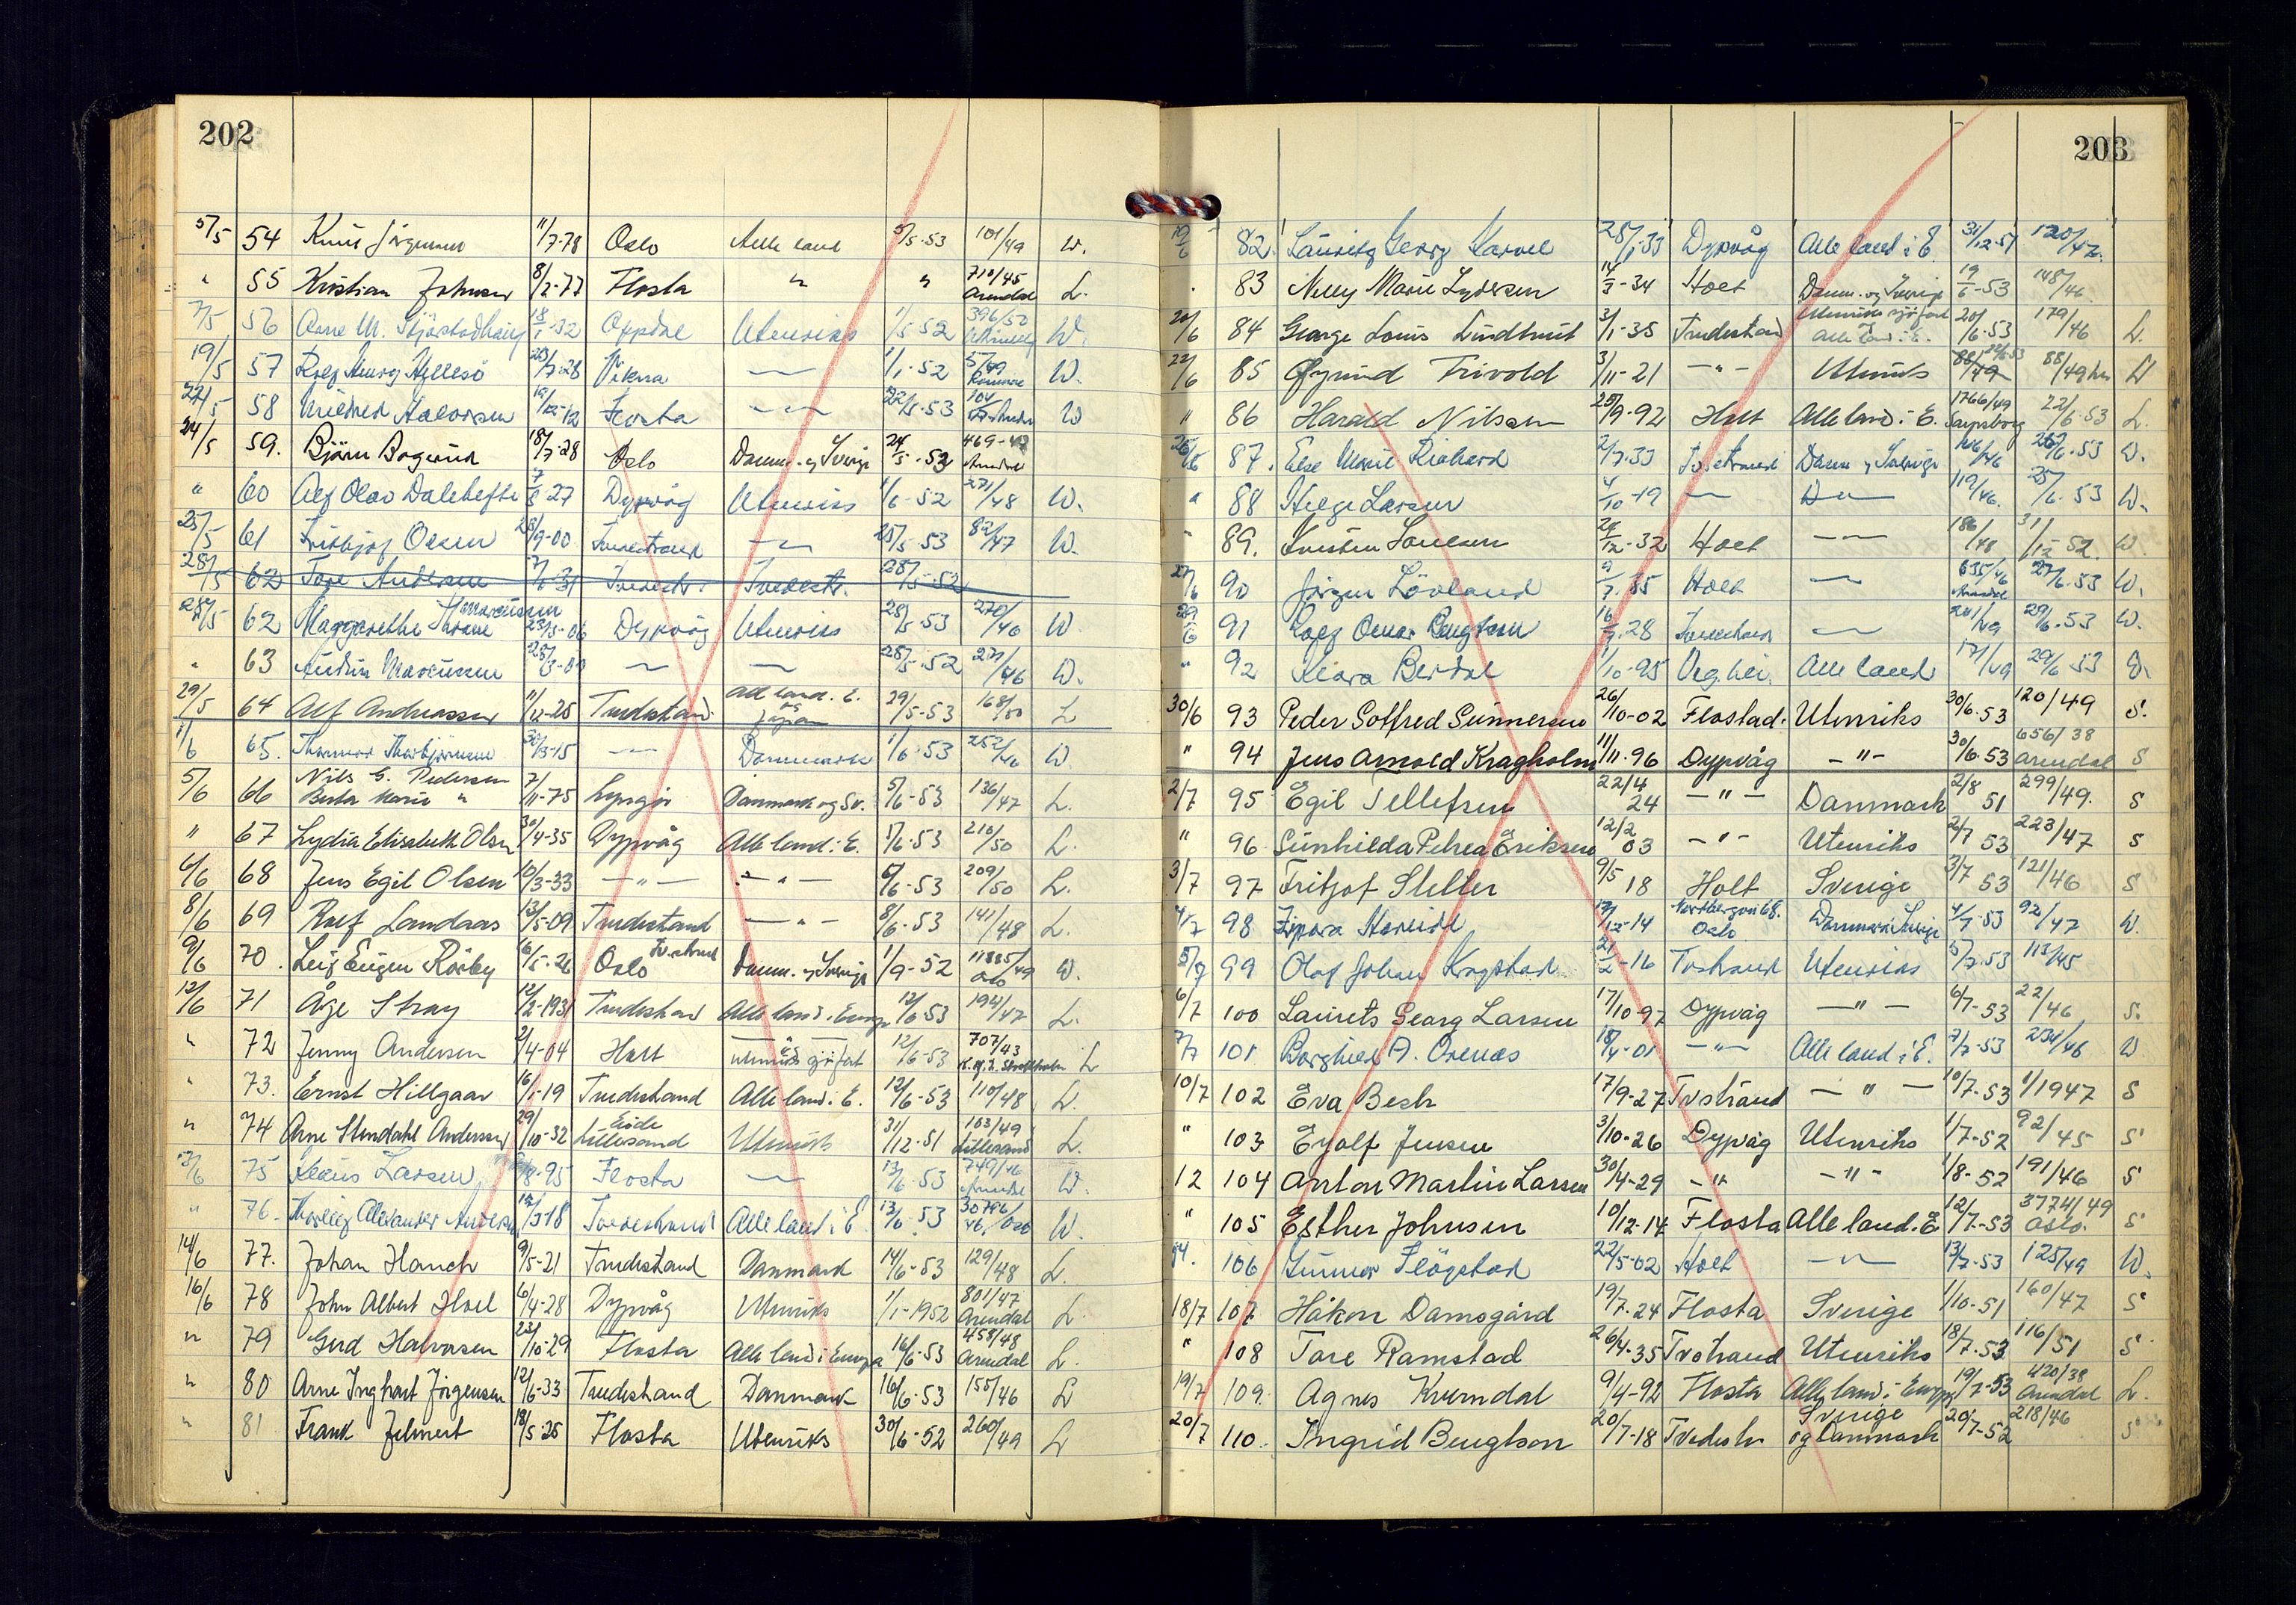 202
5/5 54 Knut Jörgensen 11/7-78 Oslo Alle land 5/5-53 101/49 W.
" 55 Kristian Johnsen 8/2-77 Flosta " " 710/45 Arendal L.
7/5 56 Arne M. 18/1-32 Oppdal Utenriks 1/5-52 396/52 W.
19/5 57 Rolf Henry Hellesö 28 Vikna — 1/1-52 W.
22/5 58 Mildred Halvorsen 19/12-12 Flosta — 22/5-53 104 W
24/5 59. Björn Bogerud 18/7-28 Oslo Danm. og Sverige 24/5-52 469-49 Arendal
" 60 Alf Olav Dalehefte 7/8-27 Dypvåg Utenriks 1/6-52 27/48 W.
25/5 61 Fritjof Olsen 28/9-00 Tvedestrand — 25/5-53 82/47 W.
28/5 62 Tore Andersen 31 Tvedestr. Tvedestr. 28/5-52
28/5 62 Maggarethe Thrane Marcussen 23/3-06 Dypvåg Utenriks 28/5-53 270/46 W.
" 63 Audun Marcussen — — 28/5-52 271/46 W.
29/5 64 Alf Andreassen 11/12-25 Tvedestrand All land. E. og Japan 29/5-53 168/50 L
1/6 65. Thorbjörnsen 30/3-15 — Danmark 1/6-53 252/46 W.
5/6 66 Nils G. Pedersen Berta Marie " 7/11-75 Lyngör Danmark og Sv. 5/6-53 136/47 L.
" 67 Lydia Elisabeth Olsen 30/4-35 Dypvåg Alle land i E. 5/6-53 210/50 L.
6/6 68 Jens Egil Olsen 10/3-33 — " — — " — 6/6-53 209/50 L.
8/6 69 Rolf Landaas 13/5-09 Tvedestrand — " — 8/6-53 141/48 L.
9/6 70. Leif Eugen Röiby 16/5-26 Oslo Tv.strand Danm. og Sverige 1/9-52 49 Oslo W.
12/6 71 Åge Stray 12/2-1931 Tvedestrand Alle land i Europa 12/6-53 194/47 L.
" 72 Jenny Andersen 2/4-04 Holt utenriks sjöfart 12/6-53 707/43 L
" 73. Ernst Hillgaar 16/1-19 Tvedestrand Alle land i E. 12/6-53 110/48 L.
" 74 Arne Stendahl Andersen 29/10-32 Eide Lillesand Utenriks 31/12-51 103/49 Lillesand L.
13/6 75 Klaus Larsen 8-95 Flosta — 13/6-53 749/46 Arendal W.
" 76. Thorleif Alexander Andersen 12/3-18 Tvedestrand Alle land i E 13/6-53 30786/46, Oslo W.
14/6 77. Johan Hauch 9/5-21 Tvedestrand Danmark 14/6-53 129/48 L.
16/6 78 John Albert Hoel 6/4-28 Dypvåg Utenriks 1/1-1952 801/47 Arendal L.
" 79 Gerd Halvorsen 23/10-29 Flosta Alle land i Europa 16/6-53 458/48 Arendal L.
" 80 Arne Inghart Jörgensen 12/6-33 Tvedestrand Danmark 16/6-53 155/46 L
" 81 Frank Zehnert 18/5-25 Flosta Utenriks 30/6-52 260/49 L
203
19/6 82. Lauritz Georg Karvel 28/1-33 Dypvåg Alle land i E. 31/12-51 120/47.
" 83 Nelly Marie Lydersen 14/3-34 Holt Danm. og Sverige 19/6-53 148/46
20/6 84 George Louis Lindtveit 3/1-35 Tvedestrand Utenriks sjöfart og alle land i E. 20/6-53 179/46 L.
22/6 85 Öyvind Trivold 3/11-21 — " — Utenriks 88/49 22/6-53 88/49 L
" 86 Harald Nilsen 25/9-92 Holt Alle land i E. 1766/49 Sarpsborg 22/6-53 L.
26/6 87. Else Marie Richard 2/7-33 Tvedestrand Danm. og Sverige 106/46 26/6-53 W.
" 88 Helge Larsen 4/10-19 — D — 119/46. 25/6-53 W.
" 89. 24/12-32 Holt — 186/48 31/12-52. W.
27/6 90 Jörgen Lövland 9/7-35 Holt — 635/46 Arendal 27/6-53 W.
29/6 91 Rolf Oskar Bengtson 16/9-28 Tvedestrand — 201/49 29/6-53 W.
" 92 Klara Berdal 1/10-95 Veg.hei. Alle land 171/49 29/6-53 W.
30/6 93 Peder Gotfred Gunnersen 26/10-02 Flostad. Utenriks 30/6-53 120/49 S.
" 94 Jens Arnold Kragholm 11/11-96 Dypvåg — " — 30/6-53 656/38 Arendal S
2/7 95 Egil Tellefsen 22/4 24 — " — Danmark 2/8 51 299/49. S
" 96 Gunhilda Petrea Eriksen 12/2 03 — " — Utenriks 2/7 53 223/47 S
3/7 97 Fritjof Sletter 9/5 18 Holt Sverige 3/7 53 121/46 S
4/7 98 Zipora Hareide 17/12-14 Oslo Danmark Sverige 4/7-53 92/47 W.
5/7 99 Olaf Johan Kragstad 21/2-16 Tvstrand Utenriks 5/7-53 113/45
6/7 100 Laurets Georg Larsen 17/10-97 Dypvåg — " — 6/7-53 22/46 S.
7/7 101 Borghild A. Örenäs 18/4-01 — " — Alle land i E. 7/7-53 234/46 W
10/7 102 Eva Bech 17/9-27 Tvstrand — " — 10/7-53 1/1947 S
" 103 Eyolf Jensen 3/10-26 Dypvåg Utenriks 1/7-52 92/45 S
12 104 Anton Martin Larsen 30/4-29 — " — — " — 1/8-52 191/46 S
" 105 Esther Johnsen 10/12-14 Flosta Alle land. E 12/7-53 3774/49 Oslo. S
14. 106 Gunnar Flögstad 22/5-02 Holt — " — 13/7-53 125/49 W.
18/7 107 Håkon Damsgård 19/7-24 Flosta Sverige 1/10-51 160/47 S
" 108 Tore Ramstad 26/4-35 Tvstrand Utenriks 18/7-53 116/51 S
19/7 109. Agnes Kverndal 9/4-92 Flosta Alle land i Europa 19/7-53 420/38 Arendal L.
20/7 110. Ingrid Bengtson 20/7-18 Tvedestr Sverige og Danmark 20/7-52 218/46 S